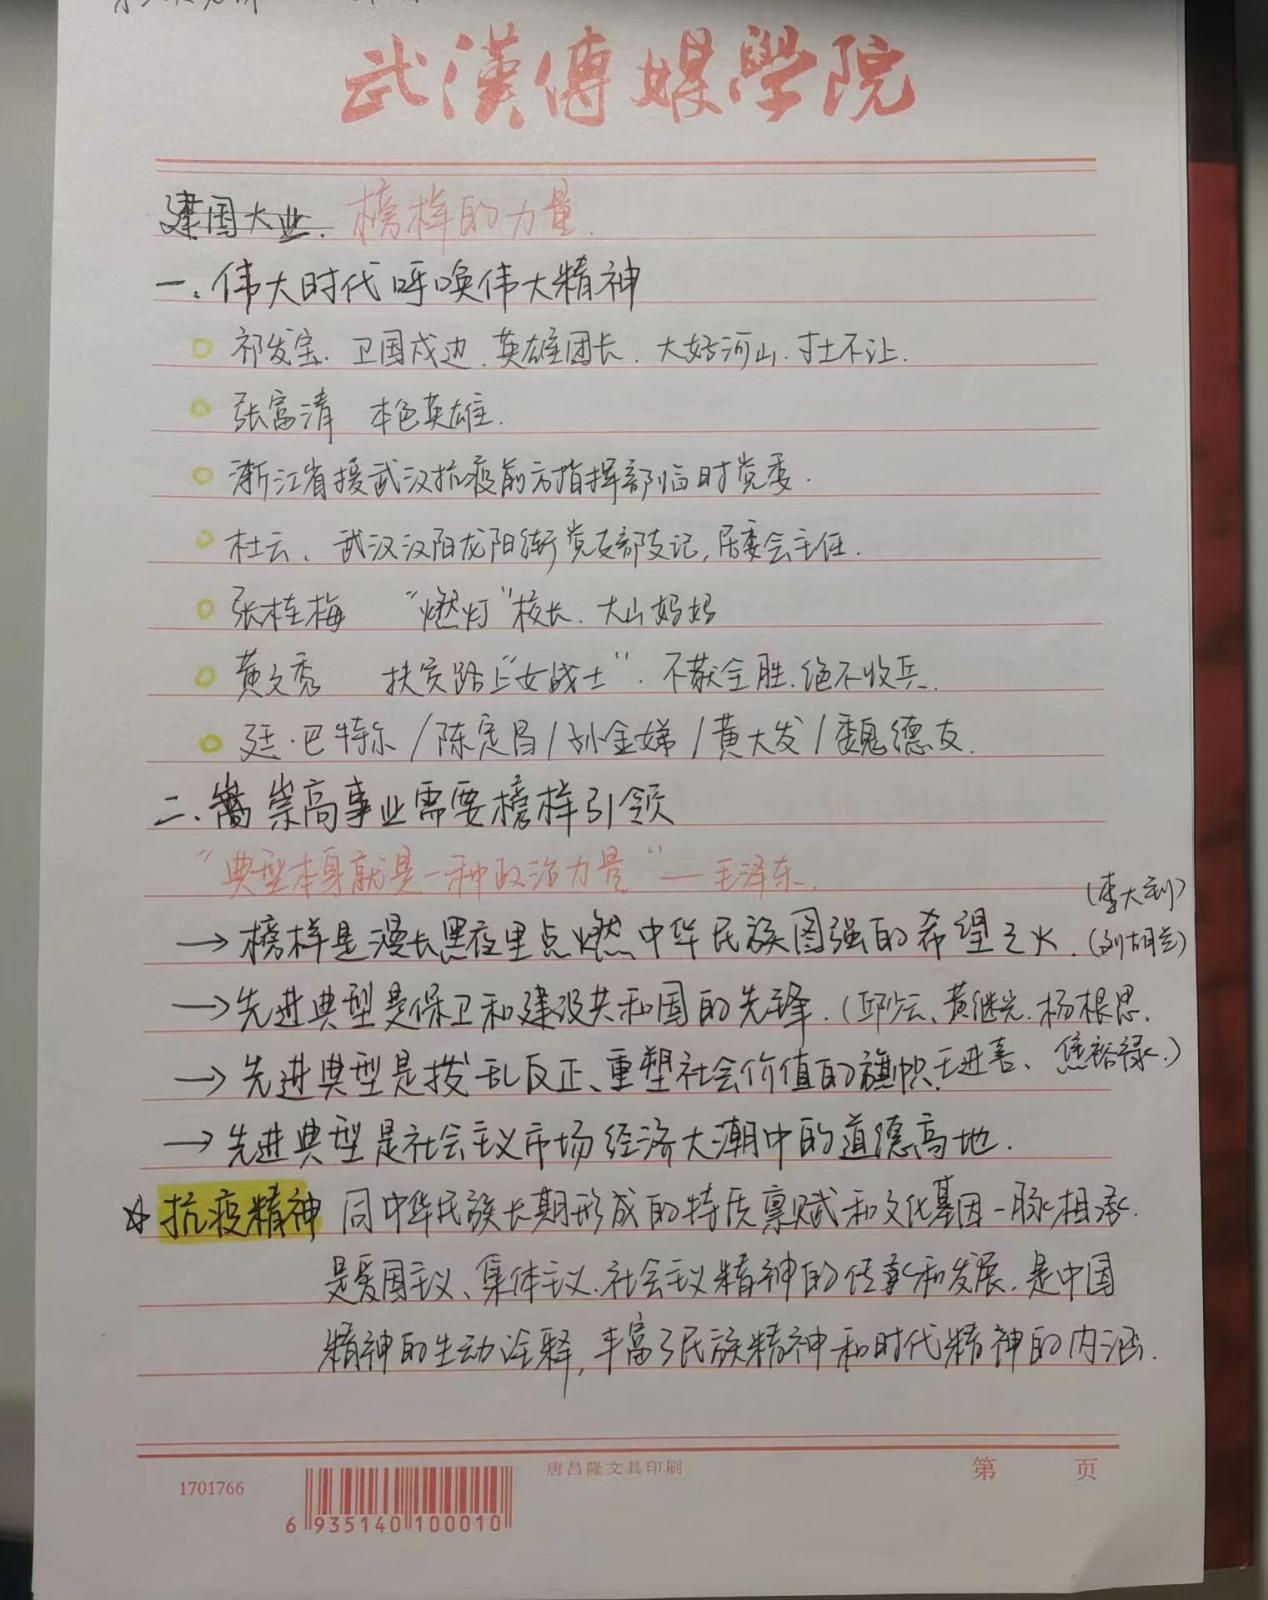 武漢傳媒學院
建国大业. 榜样的力量.
一. 伟大时代呼唤伟大精神
祁发宝. 卫国戍边. 英雄团长. 大好河山. 寸土不让.
张富清 本色英雄.
浙江省援武汉抗疫前方指挥部临时党委.
杜云、武汉汉阳龙阳街党支部支记, 居委会主任.
张桂梅 “燃灯”校长. 大山妈妈
黄文秀 扶贫路上“女战士”. 不获全胜. 绝不收兵.
廷·巴特尔/陈定昌/孙金娣/黄大发/魏德友.
二. 崇高事业需要榜样引领
“典型本身就是一种政治力量”—毛泽东.
(李大钊)
→榜样是漫长黑夜里点燃中华民族图强的希望之火. (刘胡兰)
→先进典型是保卫和建设共和国的先锋. (邱少云、黄继光. 杨根思.
→先进典型是拨乱反正、重塑社会价值的旗帜. 王进喜、焦裕禄.)
→先进典型是社会主义市场经济大潮中的道德高地.
☆抗疫精神 同中华民族长期形成的特质禀赋和文化基因一脉相承.
是爱国主义、集体主义. 社会主义精神的传承和发展. 是中国
精神的生动诠释, 丰富了民族精神和时代精神的内涵.
唐昌隆文具印刷
第 页
1701766
6 935140 100010